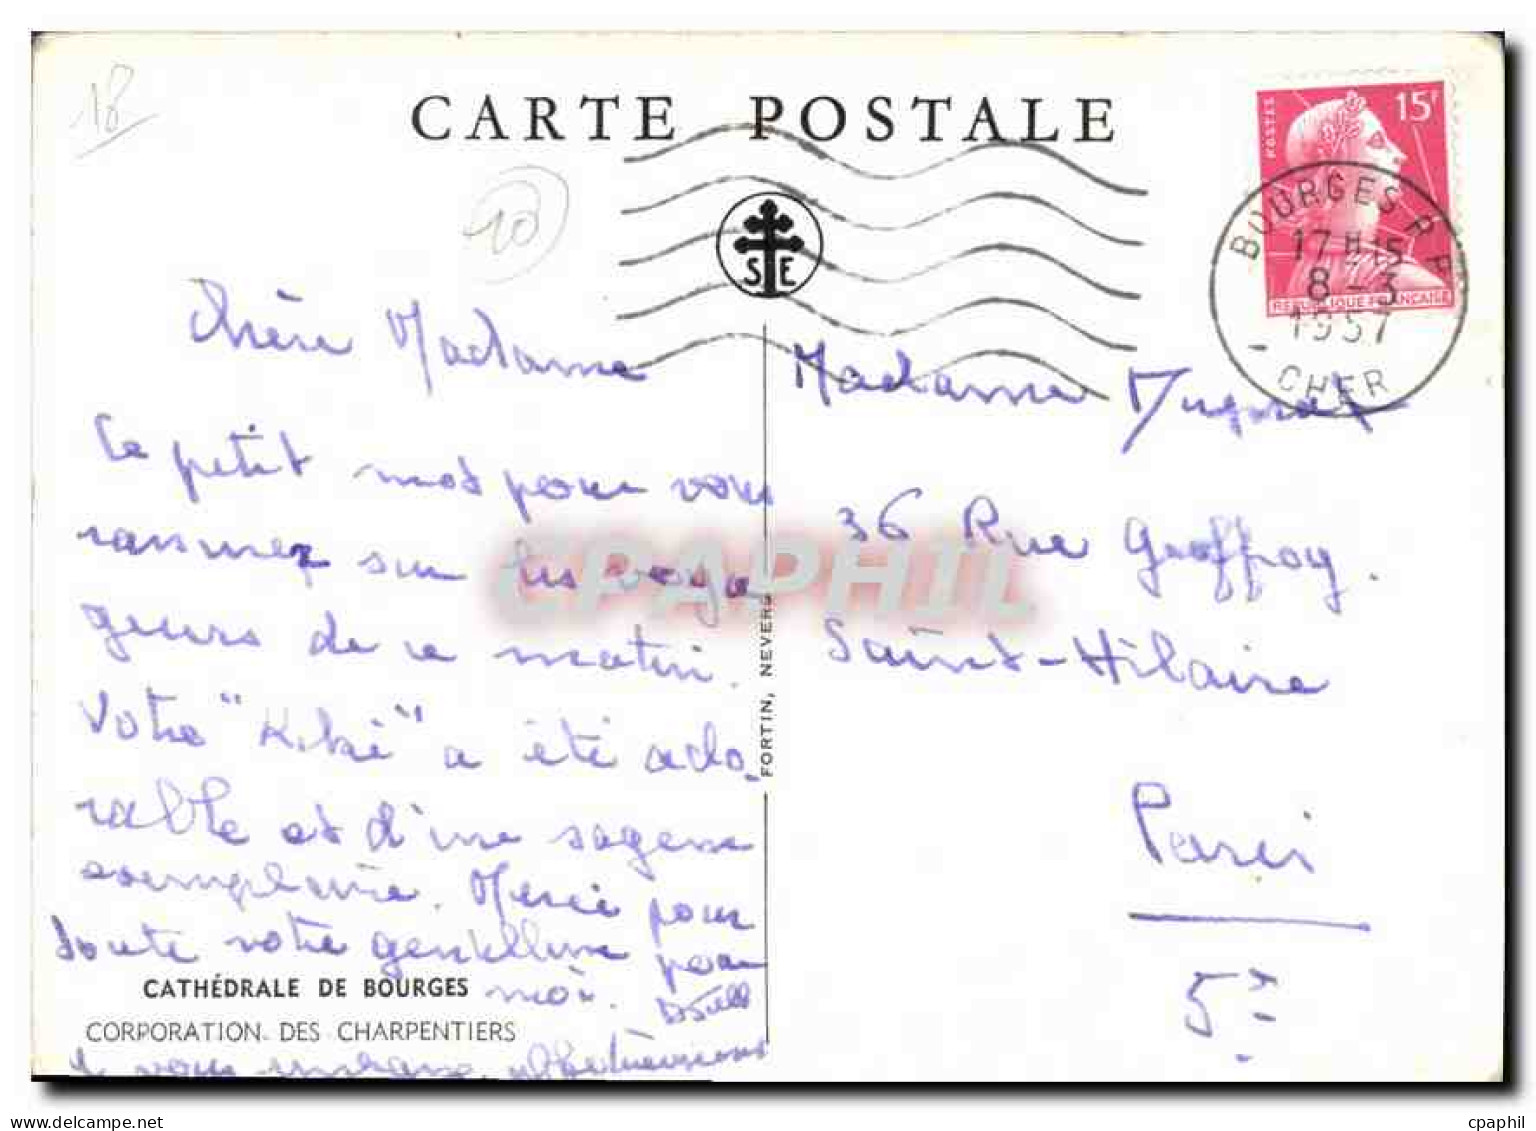 18
CARTE POSTALE
10
POSTES
15F
REPUBLIQUE FRANÇAISE
BOURGES R.P.
17 H 15
8 - 3
1957
CHER
S E
Chère Madame
Ce petit mot pour vous
rassurez sur les voya
geurs de ce matin.
Votre "Kiki" a été ado-
rable et d'une sagesse
exemplaire. Merci pour
toute votre gentillesse pour
moi.
je vous embrasse affectueusement
CATHÉDRALE DE BOURGES
CORPORATION DES CHARPENTIERS
FORTIN, NEVERS
Madame
36 Rue Geoffroy.
Saint-Hilaire
Paris
5e
CPAPHIL
cpaphil.com